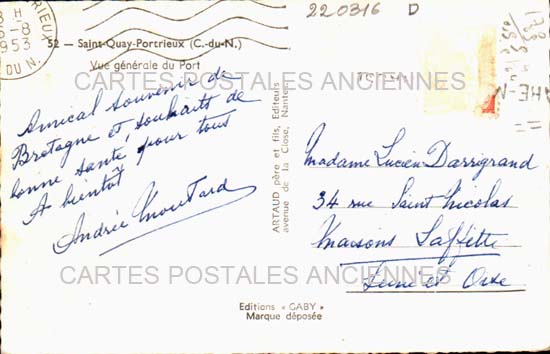 8 H
6-8
1953
PORTRIEUX
DU N.
220316 D
52 — Saint-Quay-Portrieux (C.-du-N.)
Vue générale du Port
CARTES POSTALES ANCIENNES
Amical souvenir de
Bretagne et, souhaits de
bonne santé, pour tous
A bientôt
Andrée Moutard
ARTAUD père et fils, Editeurs
avenue de la Close, Nantes
Madame Lucien Darrigrand
34 rue Saint Nicolas
Maisons Laffitte
Seine et Oise
CARTES POSTALES ANCIENNES
Editions « GABY »
Marque déposée